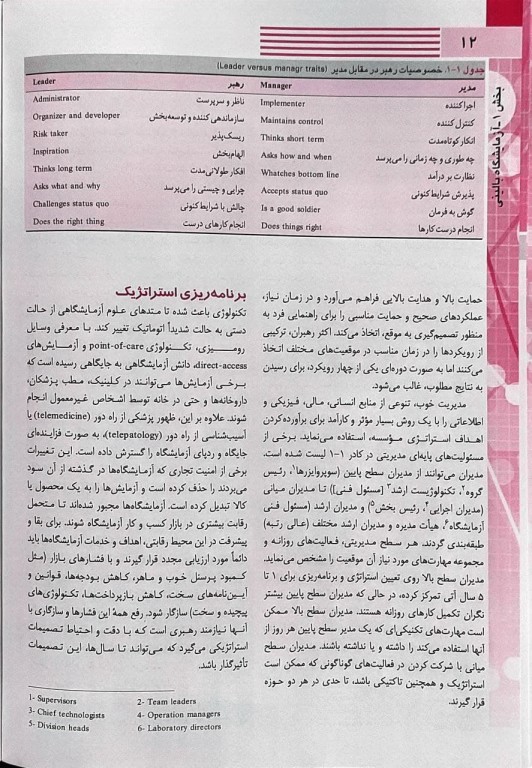 ۱۲
بخش ۱-آزمایشگاه بالینی
جدول ۱-۱. خصوصیات رهبر در مقابل مدیر (Leader versus managr traits)
Leader رهبر Manager مدیر
Administrator ناظر و سرپرست Implementer اجراکننده
Organizer and developer سازماندهی کننده و توسعه‌بخش Maintains control کنترل کننده
Risk taker ریسک‌پذیر Thinks short term افکار کوتاه‌مدت
Inspiration الهام‌بخش Asks how and when چه طوری و چه زمانی را می‌پرسد
Thinks long term افکار طولانی‌مدت Whatches bottom line نظارت بر درآمد
Asks what and why چرایی و چیستی را می‌پرسد Accepts status quo پذیرش شرایط کنونی
Challenges status quo چالش با شرایط کنونی Is a good soldier گوش به فرمان
Does the right thing انجام کارهای درست Does things right انجام درست کارها
حمایت بالا و هدایت بالایی فراهم می‌آورد و در زمان نیاز،
عملکردهای صحیح و حمایت مناسبی را برای راهنمایی فرد به
منظور تصمیم‌گیری به موقع، اتخاذ می‌کند. اکثر رهبران، ترکیبی
از رویکردها را در زمان مناسب در موقعیت‌های مختلف اتخاذ
می‌کنند اما به صورت دوره‌ای یکی از چهار رویکرد، برای رسیدن
به نتایج مطلوب، غالب می‌شود.
مدیریت خوب، تنوعی از منابع انسانی، مالی، فیزیکی و
اطلاعاتی را با یک روش بسیار مؤثر و کارآمد برای برآورده‌کردن
اهداف استراتژی مؤسسه، استفاده می‌نماید. برخی از
مسئولیت‌های پایه‌ای مدیریتی در کادر ۱-۱ لیست شده است.
مدیران می‌توانند از مدیران سطح پایین (سوپروایزرها۱، رئیس
گروه۲، تکنولوژیست ارشد۳ [مسئول فنی]) تا مدیران میانی
(مدیران اجرایی۴، رئیس بخش۵) و مدیران ارشد (مسئول فنی
آزمایشگاه۶، هیأت مدیره و مدیران ارشد مختلف (عالی رتبه)
طبقه‌بندی گردند. هر سطح مدیریتی، فعالیت‌های روزانه و
مجموعه مهارت‌های مورد نیاز آن موقعیت را مشخص می‌نماید.
مدیران سطح بالا روی تعیین استراتژی و برنامه‌ریزی برای ۱ تا
۵ سال آتی تمرکز کرده، در حالی که مدیران سطح پایین بیشتر
نگران تکمیل کارهای روزانه هستند. مدیران سطح بالا ممکن
است مهارت‌های تکنیکی‌ای که یک مدیر سطح پایین هر روز از
آنها استفاده می‌کند را داشته و یا نداشته باشند. مدیران سطح
میانی با شرکت کردن در فعالیت‌های گوناگونی که ممکن است
استراتژیک و همچنین تاکتیکی باشد، تا حدی در هر دو حوزه
قرار گیرند.
برنامه‌ریزی استراتژیک
تکنولوژی باعث شده تا متدهای علوم آزمایشگاهی از حالت
دستی به حالت شدیداً اتوماتیک تغییر کند. با معرفی وسایل
رومیزی، تکنولوژی point-of-care و آزمایش‌های
direct-access، دانش آزمایشگاهی به جایگاهی رسیده است که
برخی آزمایش‌ها می‌توانند در کلینیک، مطب پزشکان،
داروخانه‌ها و حتی در خانه توسط اشخاص غیرمعمول انجام
شوند. علاوه بر این، ظهور پزشکی از راه دور (telemedicine) یا
آسیب‌شناسی از راه دور (telepatology)، به صورت فزاینده‌ای
جایگاه و ردپای آزمایشگاه را گسترش داده است. این تغییرات
برخی از امنیت تجاری که آزمایشگاه‌ها در گذشته از آن سود
می‌بردند را حذف کرده است و آزمایش‌ها را به یک محصول یا
کالا تبدیل کرده است. آزمایشگاه‌ها مجبور شده‌اند تا متحمل
رقابت بیشتری در بازار کسب و کار آزمایشگاه شوند. برای بقا و
پیشرفت در این محیط رقابتی، اهداف و خدمات آزمایشگاه‌ها باید
دائماً مورد ارزیابی مجدد قرار گیرند و با فشارهای بازار (مثل
کمبود پرسنل خوب و ماهر، کاهش بودجه‌ها، قوانین و
آیین‌نامه‌های سخت، کاهش بازپرداخت‌ها، تکنولوژی‌های
پیچیده و سخت) سازگار شود. رفع همه این فشارها و سازگاری با
آنها نیازمند رهبری است که با دقت و احتیاط تصمیمات
استراتژیکی می‌گیرد که می‌تواند تا سال‌ها، این تصمیمات
تأثیرگذار باشد.
1- Supervisors 2- Team leaders
3- Chief technologists 4- Operation managers
5- Division heads 6- Laboratory directors